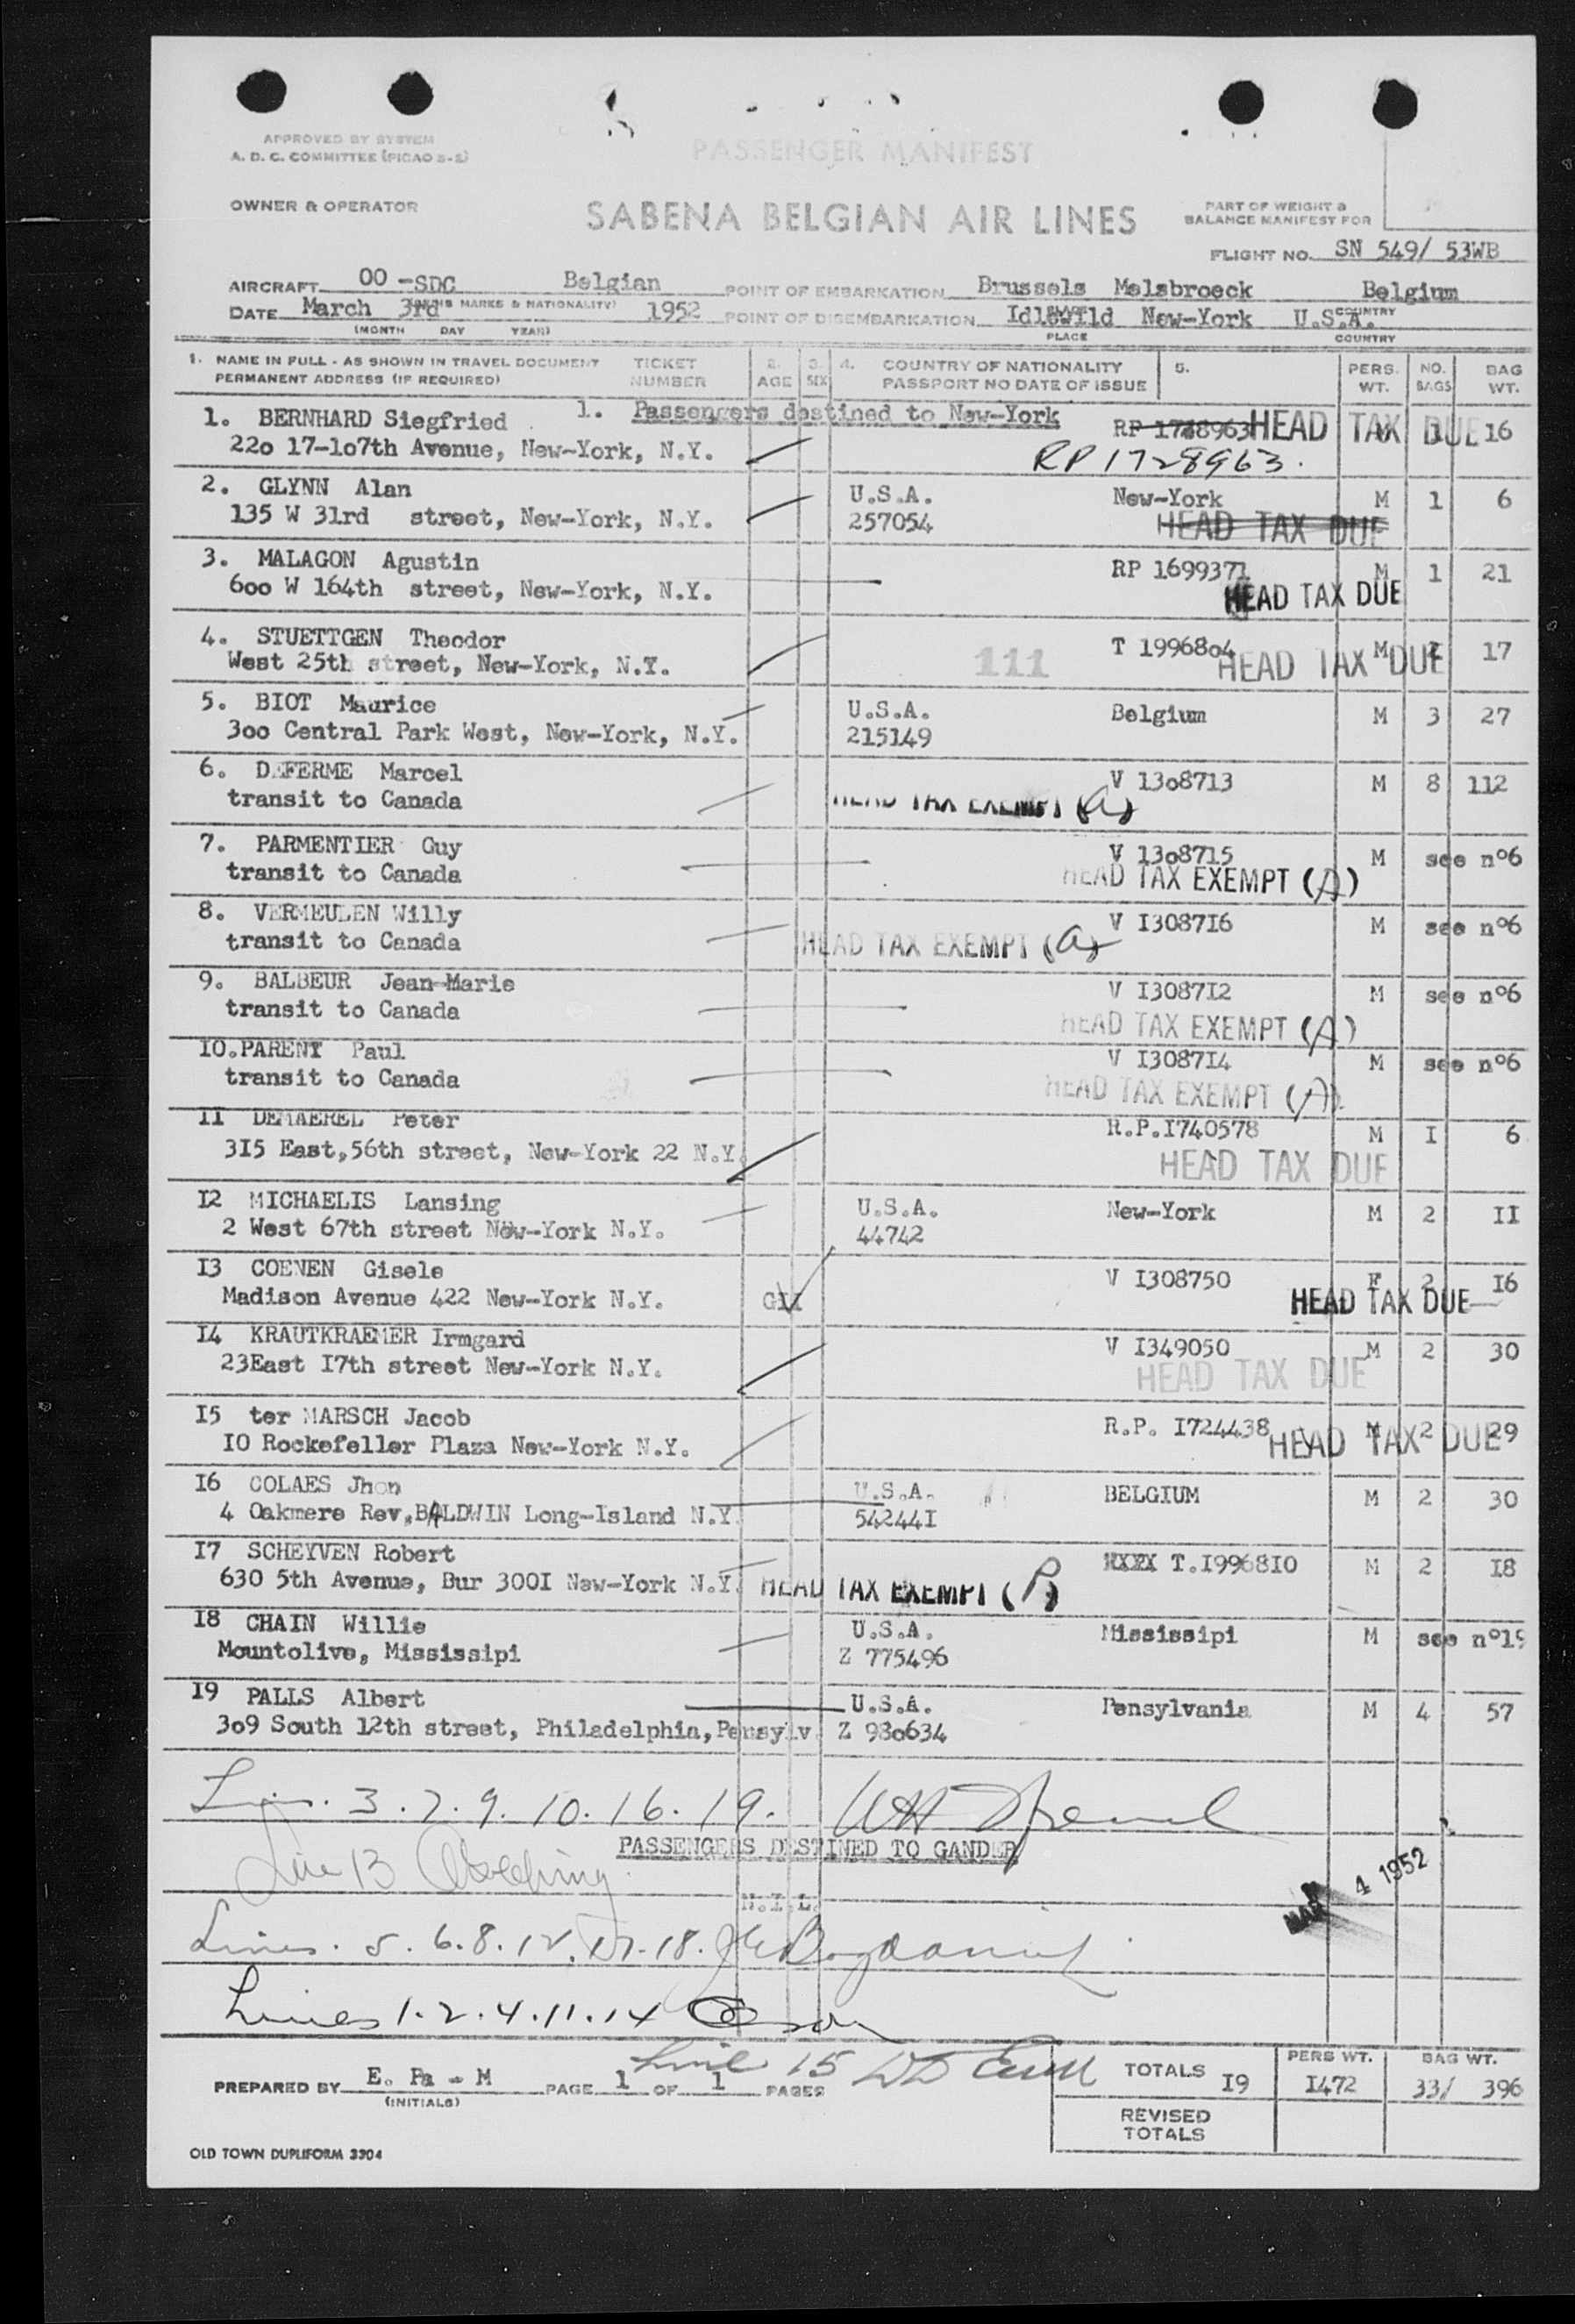 APPROVED BY SYSTEM
A. D. C. COMMITTEE (PICAO 2-2)
PASSENGER MANIFEST
OWNER & OPERATOR
SABENA BELGIAN AIR LINES
PART OF WEIGHT &
BALANCE MANIFEST FOR
FLIGHT NO. SN 549/ 53WB
AIRCRAFT OO-SDC Belgian POINT OF EMBARKATION Brussels Melsbroeck Belgium
(MARKS & NATIONALITY) PLACE COUNTRY
DATE March 3rd 1952 POINT OF DISEMBARKATION Idlewild New-York U.S.A.
(MONTH DAY YEAR) PLACE COUNTRY
1. NAME IN FULL - AS SHOWN IN TRAVEL DOCUMENT TICKET 2. 3. 4. COUNTRY OF NATIONALITY 5. PERS. NO. BAG
PERMANENT ADDRESS (IF REQUIRED) NUMBER AGE SEX PASSPORT NO DATE OF ISSUE WT. BAGS WT.
1. Passengers destined to New-York
1. BERNHARD Siegfried RP 1788963 HEAD TAX DUE 16
220 17-107th Avenue, New-York, N.Y. RP 1728963.
2. GLYNN Alan U.S.A. New-York M 1 6
135 W 31rd street, New-York, N.Y. 257054 HEAD TAX DUE
3. MALAGON Agustin RP 1699371 M 1 21
600 W 164th street, New-York, N.Y. HEAD TAX DUE
4. STUETTGEN Theodor T 1996804 M 17
West 25th street, New-York, N.Y. 111 HEAD TAX DUE
5. BIOT Maurice U.S.A. Belgium M 3 27
300 Central Park West, New-York, N.Y. 215149
6. DEFERME Marcel V 1308713 M 8 112
transit to Canada HEAD TAX EXEMPT (a)
7. PARMENTIER Guy V 1308715 M see n°6
transit to Canada HEAD TAX EXEMPT (A)
8. VERMEULEN Willy V I3087I6 M see n°6
transit to Canada HEAD TAX EXEMPT (a)
9. BALBEUR Jean-Marie V I3087I2 M see n°6
transit to Canada HEAD TAX EXEMPT (A)
IO. PARENT Paul V I3087I4 M see n°6
transit to Canada HEAD TAX EXEMPT (A)
II DEMAEREL Peter R.P.I740578 M I 6
3I5 East,56th street, New-York 22 N.Y. HEAD TAX DUE
I2 MICHAELIS Lansing U.S.A. New-York M 2 II
2 West 67th street New-York N.Y. 44742
I3 COENEN Gisele V I308750 F 2 I6
Madison Avenue 422 New-York N.Y. GII HEAD TAX DUE
I4 KRAUTKRAEMER Irmgard V I349050 M 2 30
23East I7th street New-York N.Y. HEAD TAX DUE
I5 ter MARSCH Jacob R.P. I724438 M 2 29
IO Rockefeller Plaza New-York N.Y. HEAD TAX DUE
I6 COLAES Jhon U.S.A. BELGIUM M 2 30
4 Oakmere Rev,BALDWIN Long-Island N.Y. 54244I
I7 SCHEYVEN Robert T.I9968IO M 2 I8
630 5th Avenue, Bur 300I New-York N.Y. HEAD TAX EXEMPT (P)
I8 CHAIN Willie U.S.A. Mississipi M see n°19
Mountolive, Mississipi Z 775496
I9 PALLS Albert U.S.A. Pensylvania M 4 57
309 South 12th street, Philadelphia,Pensylv. Z 980634
Lin. 3.7.9.10.16.19.
PASSENGERS DESTINED TO GANDER
Line 13
MAR 4 1952
N.I.L.
Lines. 5.6.8.12.17.18.
Lines 1.2.4.11.14
Line 15
PREPARED BY E. Pa - M PAGE 1 OF 1 PAGES
(INITIALS)
TOTALS I9 PERS WT. I472 BAG WT. 33/ 396
REVISED
TOTALS
OLD TOWN DUPLIFORM 3304